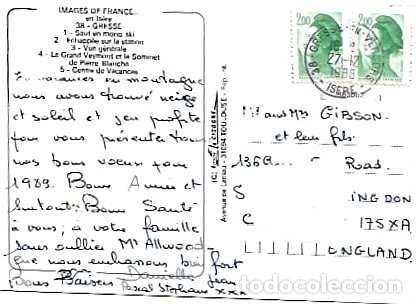 IMAGES DE FRANCE
en Isère
38 - GRESSE
1 - Saut en mono ski
2 - Echappée sur la station
3 - Vue générale
4 - Le Grand Veymont et le Sommet
de Pierre Blanche
5 - Centre de Vacances
En vacances en montagne
nous avons trouvé neige
et soleil et j'en profite
pour vous présenter tous
nos bons voeux pour
1989. Bonne Année et
surtout: Bonne Santé
à vous, a votre famille
sans oublier Mr Allwood
que nous embrassons bien fort
Danielle Jean
Pascal Stéphane xxx
Bons Baisers
31094 TOULOUSE
2,00
2,00
38 - GRESSE-EN-VERCORS
27-12
ISERE
Mr and Mrs GIBSON
and their fils
136A Road
INGDON
S
17SXA
C
ENGLAND
tc todocoleccion